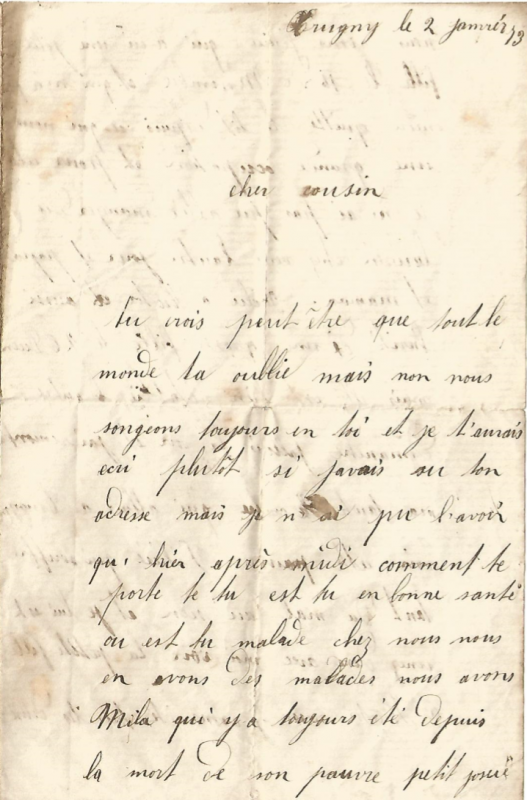 le 2 janvier 73
cher cousin
tu crois peut être que tout le
monde ta oublie mais non nous
songeons toujours en toi et je t'aurais
ecri plutôt si javais su ton
adresse mais je n'ai pu l'avoir
qu'hier après midi comment te
porte te tu est tu en bonne santé
ou est tu malade chez nous nous
en avons des malades nous avons
Mila qui y a toujours été depuis
la mort de son pauvre petit josué